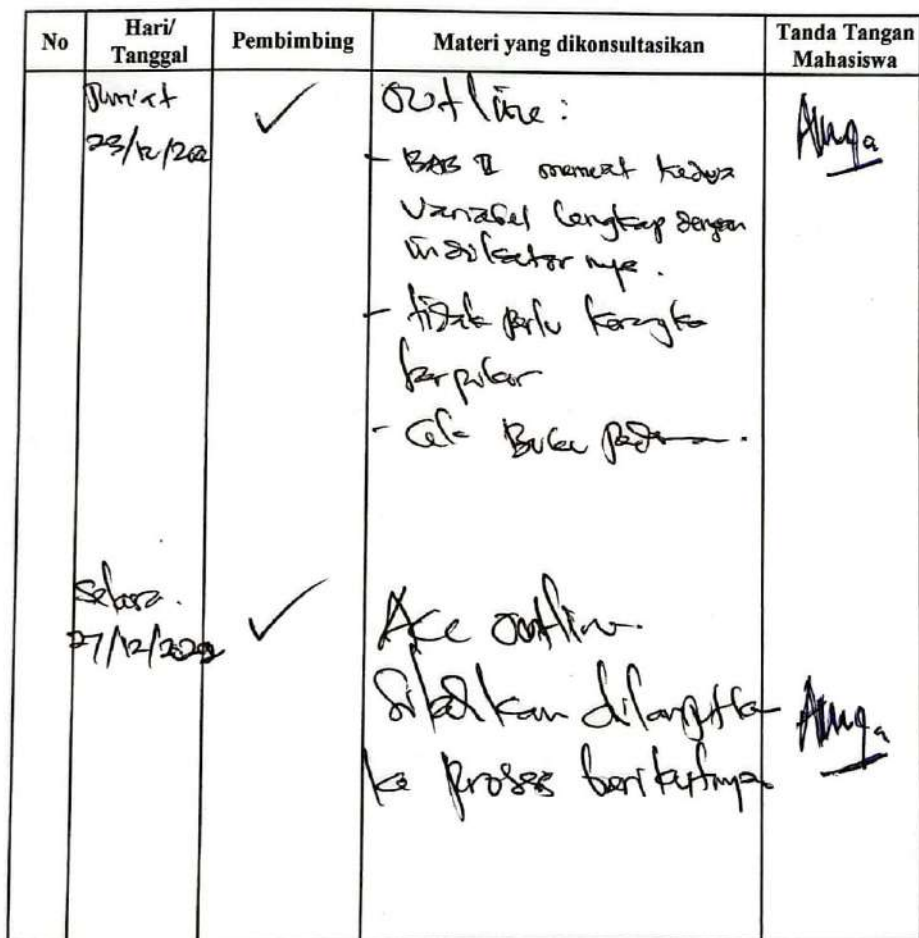 No
Hari/
Tanggal
Pembimbing
Materi yang dikonsultasikan
Tanda Tangan
Mahasiswa
Jum'at
23/12/202
Outline :
- BAB II memuat kedua
Variabel lengkap dengan
indikator nya.
- tidak perlu kerangka
berpikir
- Cek Buku pedoman.
Selasa.
27/12/2022
Acc outline.
Silahkan dilanjutkan
ke proses berikutnya